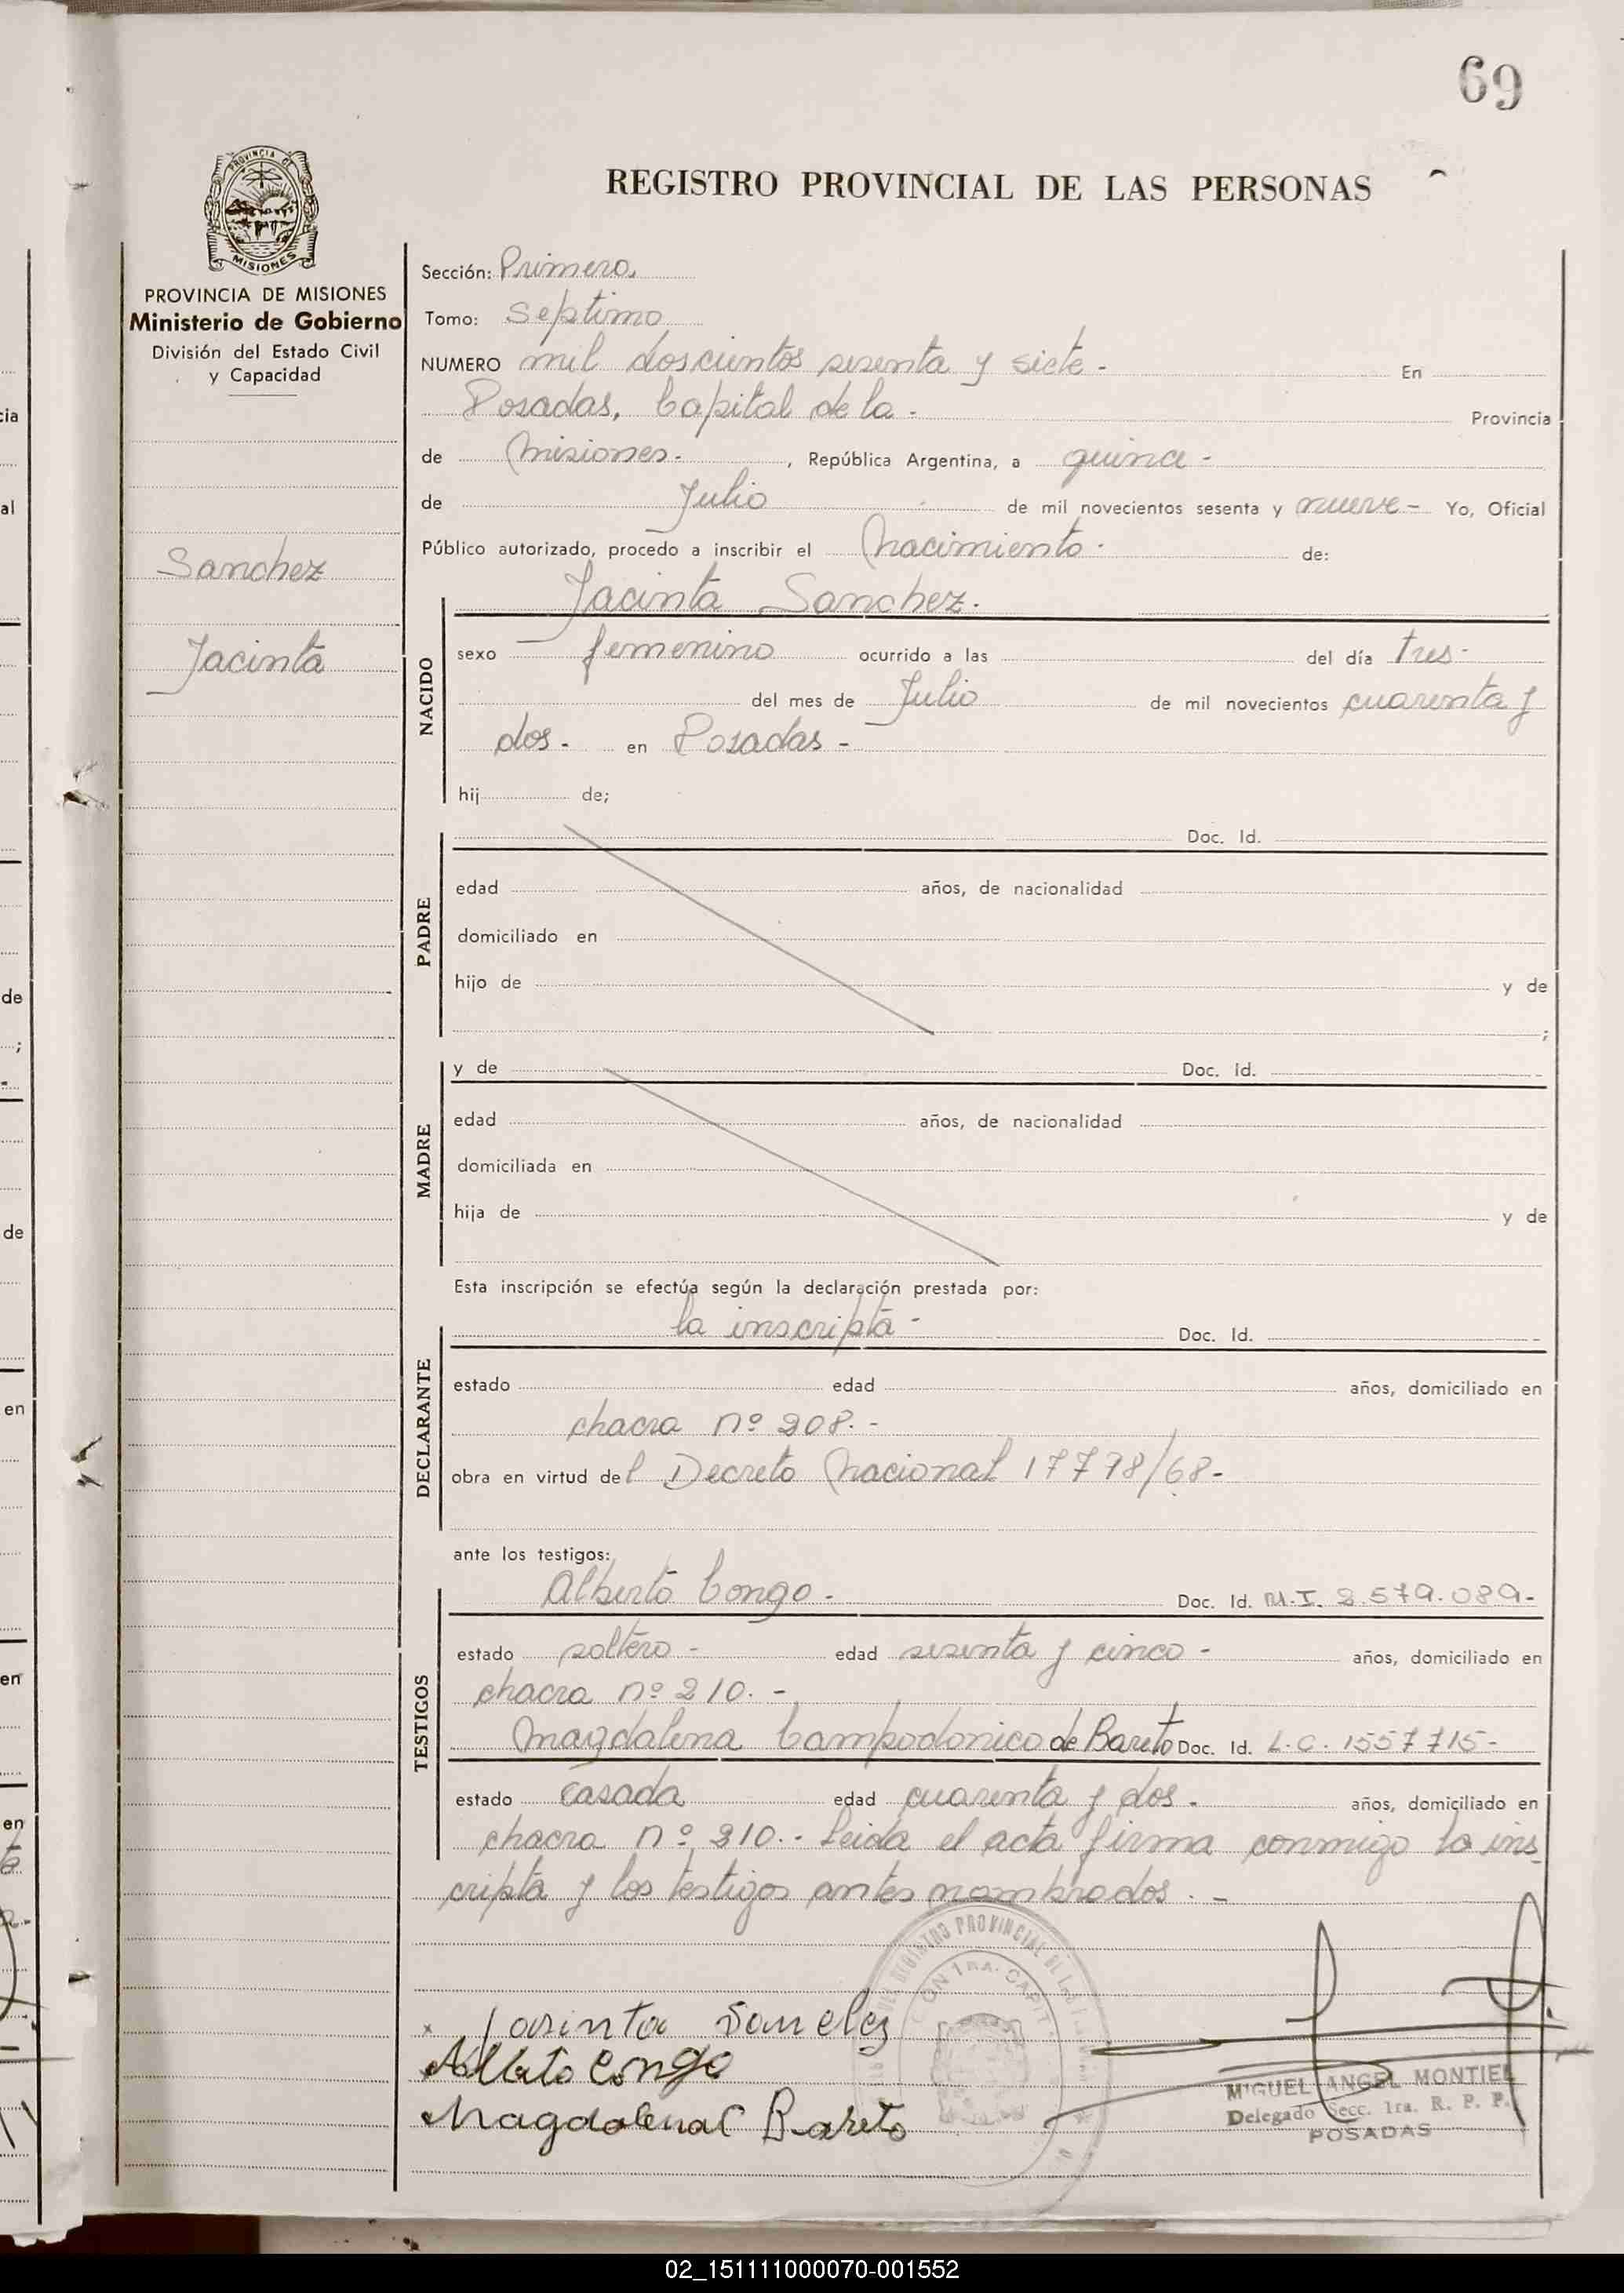 69
REGISTRO PROVINCIAL DE LAS PERSONAS
PROVINCIA DE MISIONES
Ministerio de Gobierno
División del Estado Civil
y Capacidad
Sanchez
Jacinta
Sección: Primera
Tomo: Septimo
NUMERO mil doscientos sesenta y siete - En
Posadas, Capital de la - Provincia
de Misiones - , República Argentina, a quince -
de Julio de mil novecientos sesenta y nueve - Yo, Oficial
Público autorizado, procedo a inscribir el Nacimiento - de:
Jacinta Sanchez.
NACIDO
sexo femenino ocurrido a las del día tres -
del mes de Julio de mil novecientos cuarenta y
dos - en Posadas -
hij de;
PADRE
Doc. Id.
edad años, de nacionalidad
domiciliado en
hijo de y de
;
MADRE
y de Doc. Id.
edad años, de nacionalidad
domiciliada en
hija de y de
Esta inscripción se efectúa según la declaración prestada por:
DECLARANTE
la inscripta - Doc. Id.
estado edad años, domiciliado en
chacra nº 208. -
obra en virtud del Decreto Nacional 17778/68 -
ante los testigos:
TESTIGOS
Alberto Congo - Doc. Id. M.I. 2.579.089 -
estado soltero - edad sesenta y cinco - años, domiciliado en
chacra nº 210. -
Magdalena Campodonico de Bareto Doc. Id. L.C. 1557715 -
estado casada edad cuarenta y dos - años, domiciliado en
chacra nº 210. - Leida el acta firma conmigo la ins
cripta y los testigos antes nombrados. -
x Jasinta Sanches
Alberto Congo
Magdalena C Bareto
MIGUEL ANGEL MONTIEL
Delegado Secc. 1ra. R. P. P.
POSADAS
02_151111000070-001552